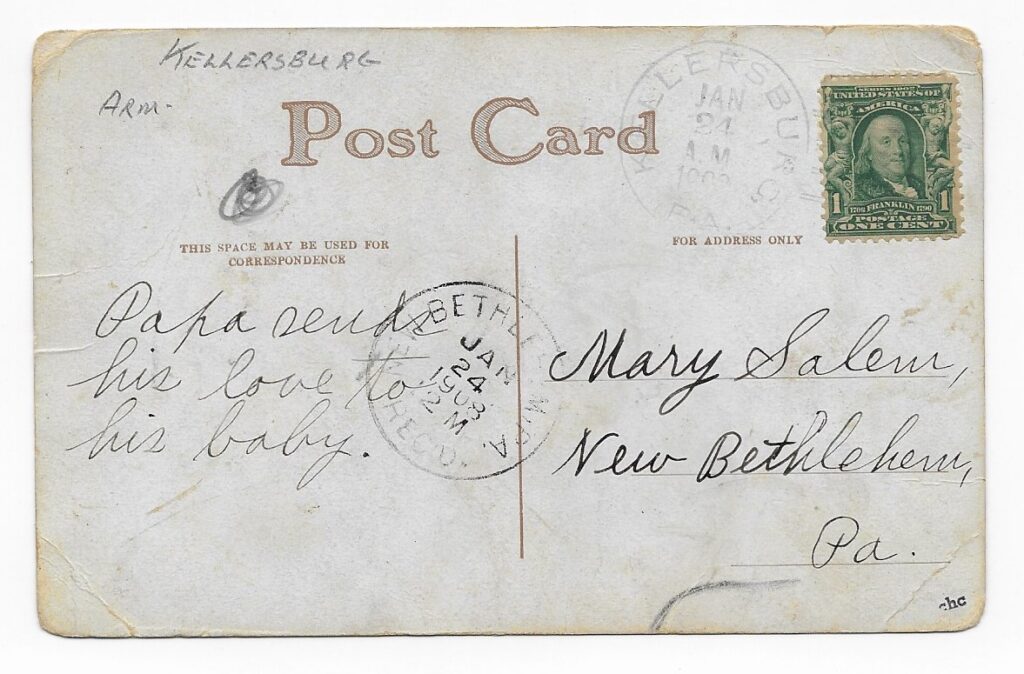 KELLERSBURG
ARM-
Post Card
KELLERSBURG
JAN
24
A.M.
PA.
SERIES 1902
UNITED STATES OF
AMERICA
1 1
1706 FRANKLIN 1790
POSTAGE
ONE CENT
THIS SPACE MAY BE USED FOR
CORRESPONDENCE
FOR ADDRESS ONLY
NEW BETHLEHEM, PA.
JAN
24
1908
12 M
REC'D.
Papa sends
his love to
his baby.
Mary Salem,
New Bethlehem,
Pa.
chc